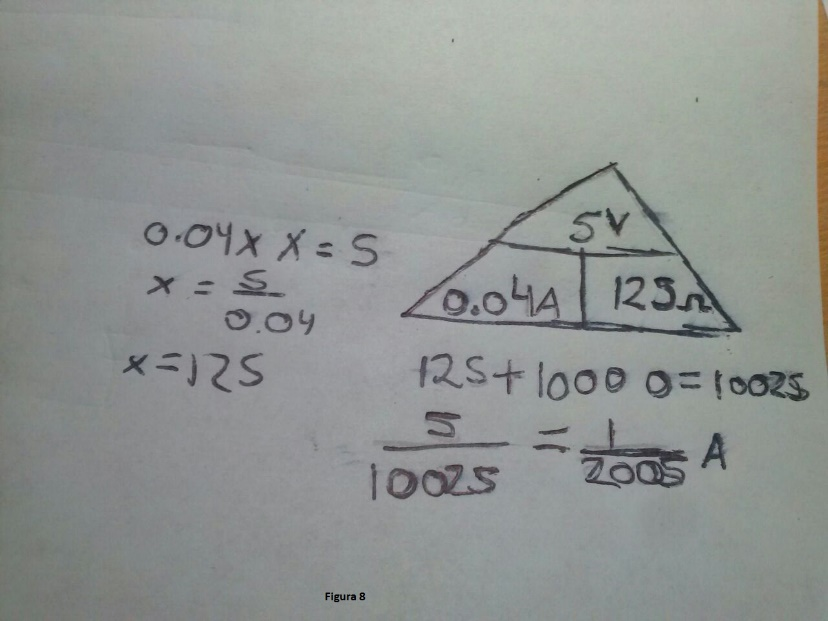 0.04 x X = 5
x = 5/0.04
x = 125
5V
0.04A 125Ω
125 + 10000 = 10025
5/10025 = 1/2005 A
Figura 8